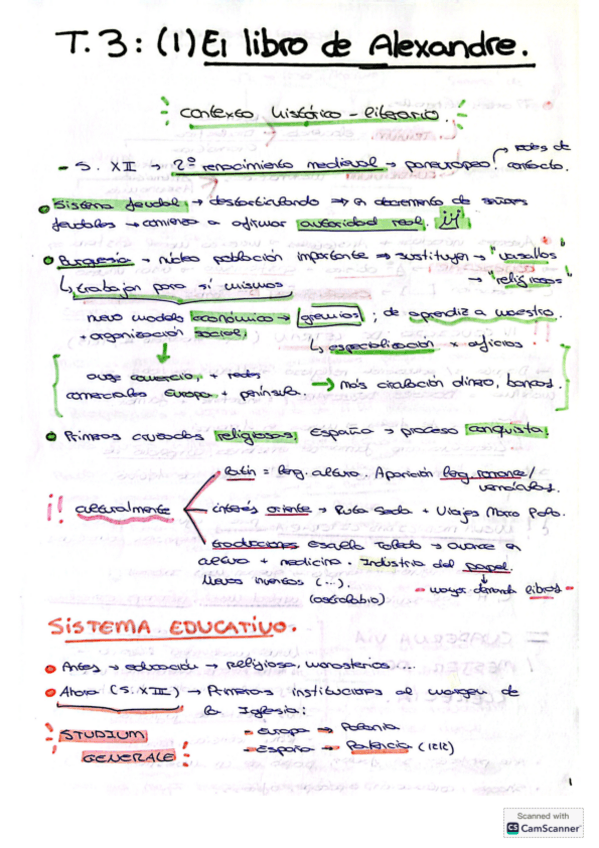 T.3: (1) El libro de Alexandre.
Contexto histórico-literario.
- S. XII → 2º renacimiento medieval → paneuropeo! → redes de contacto.
• Sistema feudal, → desarticulando → en detrimento de señores
feudales → comienza a afirmar autoridad real.
• Burguesía → núcleo población importante ⇒ sustituyen → "vasallos
→ "religiosos"
↳ trabajan para sí mismos
nuevo modelo económico → gremios; de aprendiz a maestro.
+ organización social,
↳ especialización x oficios
auge comercio, + redes
comerciales Europa + península. → más circulación dinero, bancos.
• Primeras cruzadas religiosas, España → proceso conquista,
Latín = leng. cultura. Aparición leng. romance/
vernáculas.
¡! culturalmente
interés oriente → Ruta Seda + Viajes Marco Polo.
traducciones Escuela Toledo → avance en
cultura + medicina. Industria del papel.
Nuevos inventos (...).
(astrolabio)
- mayor demanda libros -
SISTEMA EDUCATIVO.
• Antes → educación → religiosa, monasterios...
• Ahora (S. XII) → Primeras instituciones al margen de
la Iglesia:
STUDIUM
GENERALE
- Europa → Bolonia
- España → Palencia (1212)
1
Scanned with
CS CamScanner